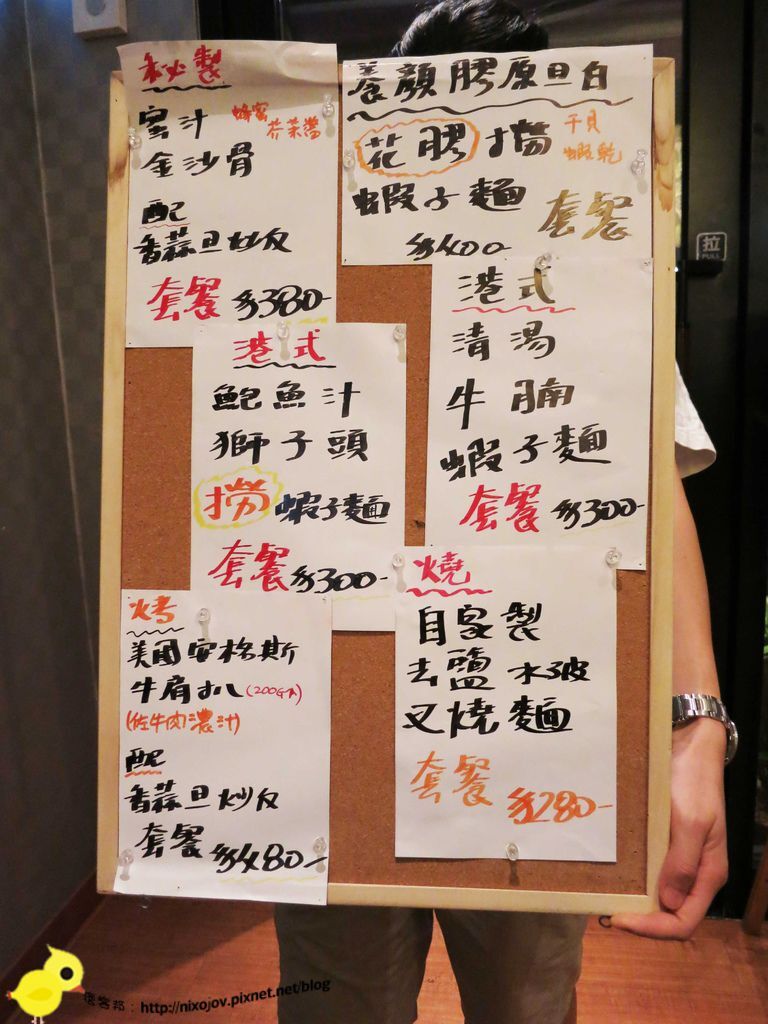 秘製
蜜汁 蜂蜜
芥茉醬
金沙骨
配
香蒜旦炒反
套餐 $380-
養顏膠原旦白
花膠撈 干貝
蝦乾
蝦子麵 套餐
$400
港式
清湯
牛腩
蝦子麵
套餐 $300-
港式
鮑魚汁
獅子頭
撈 蝦子麵
套餐 $300-
烤
美國安格斯
牛肩扒(200G↑)
(佐牛肉濃汁)
配
香蒜旦炒反
套餐 $480-
燒
自家製
去鹽水波
叉燒麵
套餐
$280-
拉
PULL
痞客邦：http://nixojov.pixnet.net/blog